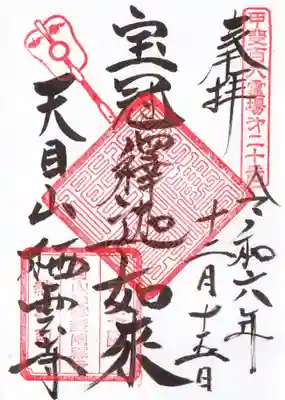 甲斐百八霊場第二十番
奉拝
令和六年
十二月十五日
宝冠釋迦如來
天目山
栖雲寺